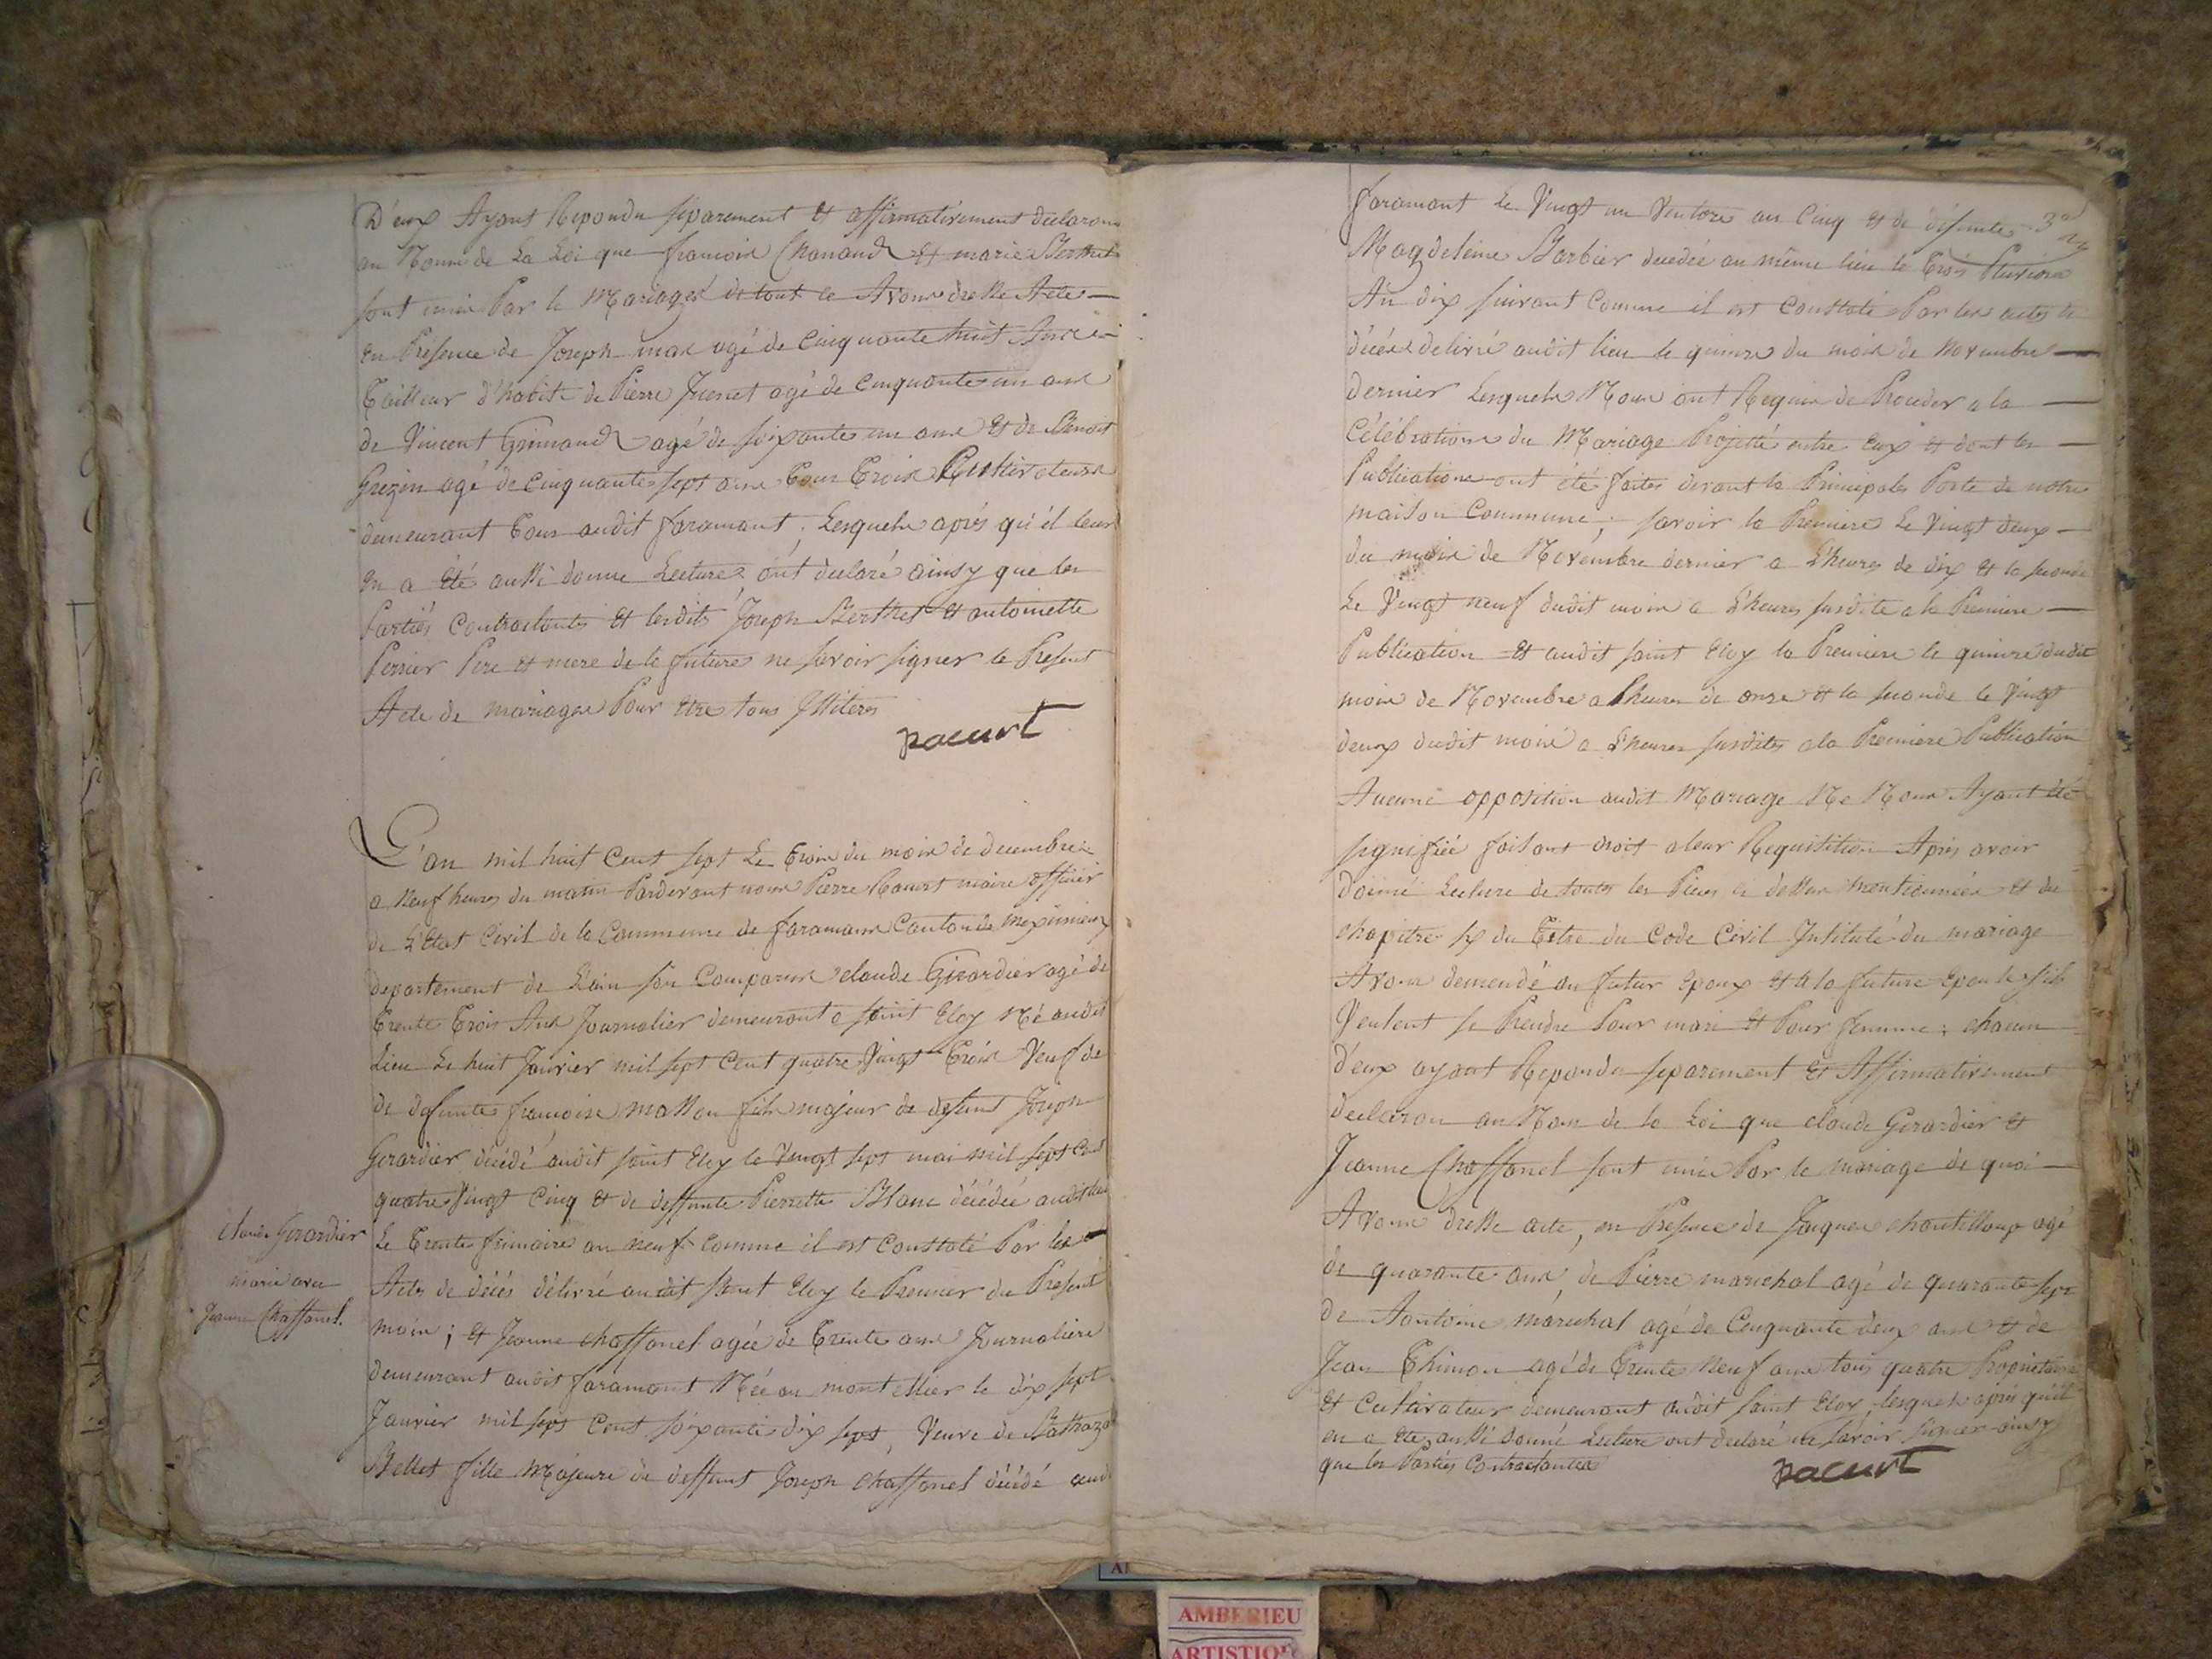 D'eux Ayant Repondu séparement et affirmativement declarons
au Nom de La Loi que francois Chanaud et marie Berthet
sont unis Par le Mariage de tout ce Avons dressé Acte —
en Presence de Joseph mas agé de cinquante huit Ans
Tailleur d'habits de Pierre Juenet agé de cinquante un ans
de Vincent Grimaud agé de soixante un ans et de Benoit
Grezin agé de cinquante sept ans tous Trois Cultivateurs
demeurant tous audit faramant, Lesquels après qu'il leur
en a été aussi donné Lecture ont declaré ainsy que les
Parties Contractantes et lesdits Joseph Berthet et antoinette
Perrier Pere et mere de la future ne savoir signer le Present
Acte de mariage Pour être tous Illiteres
Pacurt
L'an mil huit Cent sept Le Trois du mois de decembre
a Neuf heures du matin Pardevant nous Pierre Pacurt maire officier
de L'Etat Civil de la Commune de faramans Canton de meximieux
departement de L'ain son Comparus claude Girardier agé de
Trente Trois Ans Journalier demeurant a saint Eloy Né audit
Lieu Le huit Janvier mil sept Cent quatre Vingt Trois Veuf de
de defunte francoise masson fils majeur de defunt Joseph
Gerardier décédé audit saint Eloy le Vingt sept mai mil sept Cent
quatre Vingt Cinq et de deffunte Pierrette Blanc décédée audit lieu
Le Trente frimaire an neuf comme il est Constaté Par les
Actes de décés délivré audit saint Eloy le Premier du Present
mois ; et Jeanne chaffanel agée de Trente ans Journaliere
demeurant audit faramant Née au montellier le dix sept
Janvier mil sept Cent soixante dix sept, Veuve de Baltazar
Bellet fille Majeure de deffunt Joseph chaffanel décédé audit
Claude Gerardier
marié avec
Jeanne Chaffanel.
faramant Le Vingt un Ventose an Cinq et de défunte
Magdeleine Barbier decedée au même lieu le Trois Pluviose
An dix suivant Comme il est Constaté Par les actes de
décés delivré audit lieu le quinze du mois de Novembre —
dernier Lesquels Nous ont Requis de Proceder a la —
Célébration du Mariage Projetté entre Eux et dont les —
Publications ont été faites devant la Principale Porte de notre
maison Commune ; savoir la Premiere Le Vingt deux —
du mois de Novembre dernier a L'heure de dix et la seconde
Le Vingt neuf dudit mois a L'heure susdite a la Premiere —
Publication et audit saint Eloy la Premiere le quinze dudit
mois de Novembre a L'heure de onze et la seconde le Vingt
deux dudit mois a L'heure susdite a la Premiere Publication
Aucune opposition audit Mariage Ne Nous Ayant été
signifiée faisant droit a leur Requisition Après avoir
donné Lecture de toutes les Pieces ci dessus mentionnées et du
chapitre six du Titre du Code Civil Intitulé du mariage
Avons demendé au futur Epoux et a la future Epouse s'ils
Veulent se Prendre Pour mari et Pour femme : chacun
d'eux ayant Repondu separement et Affirmativement
declarons au Nom de la Loi que claude Gerardier et
Jeanne Chaffanel sont unis Par le mariage de quoi —
Avons dressé acte, en Presence de Jacques chantilloup agé
de quarante ans, de Pierre marechal agé de quarante sept
de Aantoine maréchal agé de Cinquante deux ans et de
Jean Thimon agé de Trente Neuf ans tous quatre Proprietaires
et Cultivateur demeurant audit saint Eloy, lesquels après qu'il
en a été aussi donné Lecture ont declaré ne savoir signer ainsy
que les Parties Contractantes
Pacurt
AMBERIEU
ARTISTIQUE